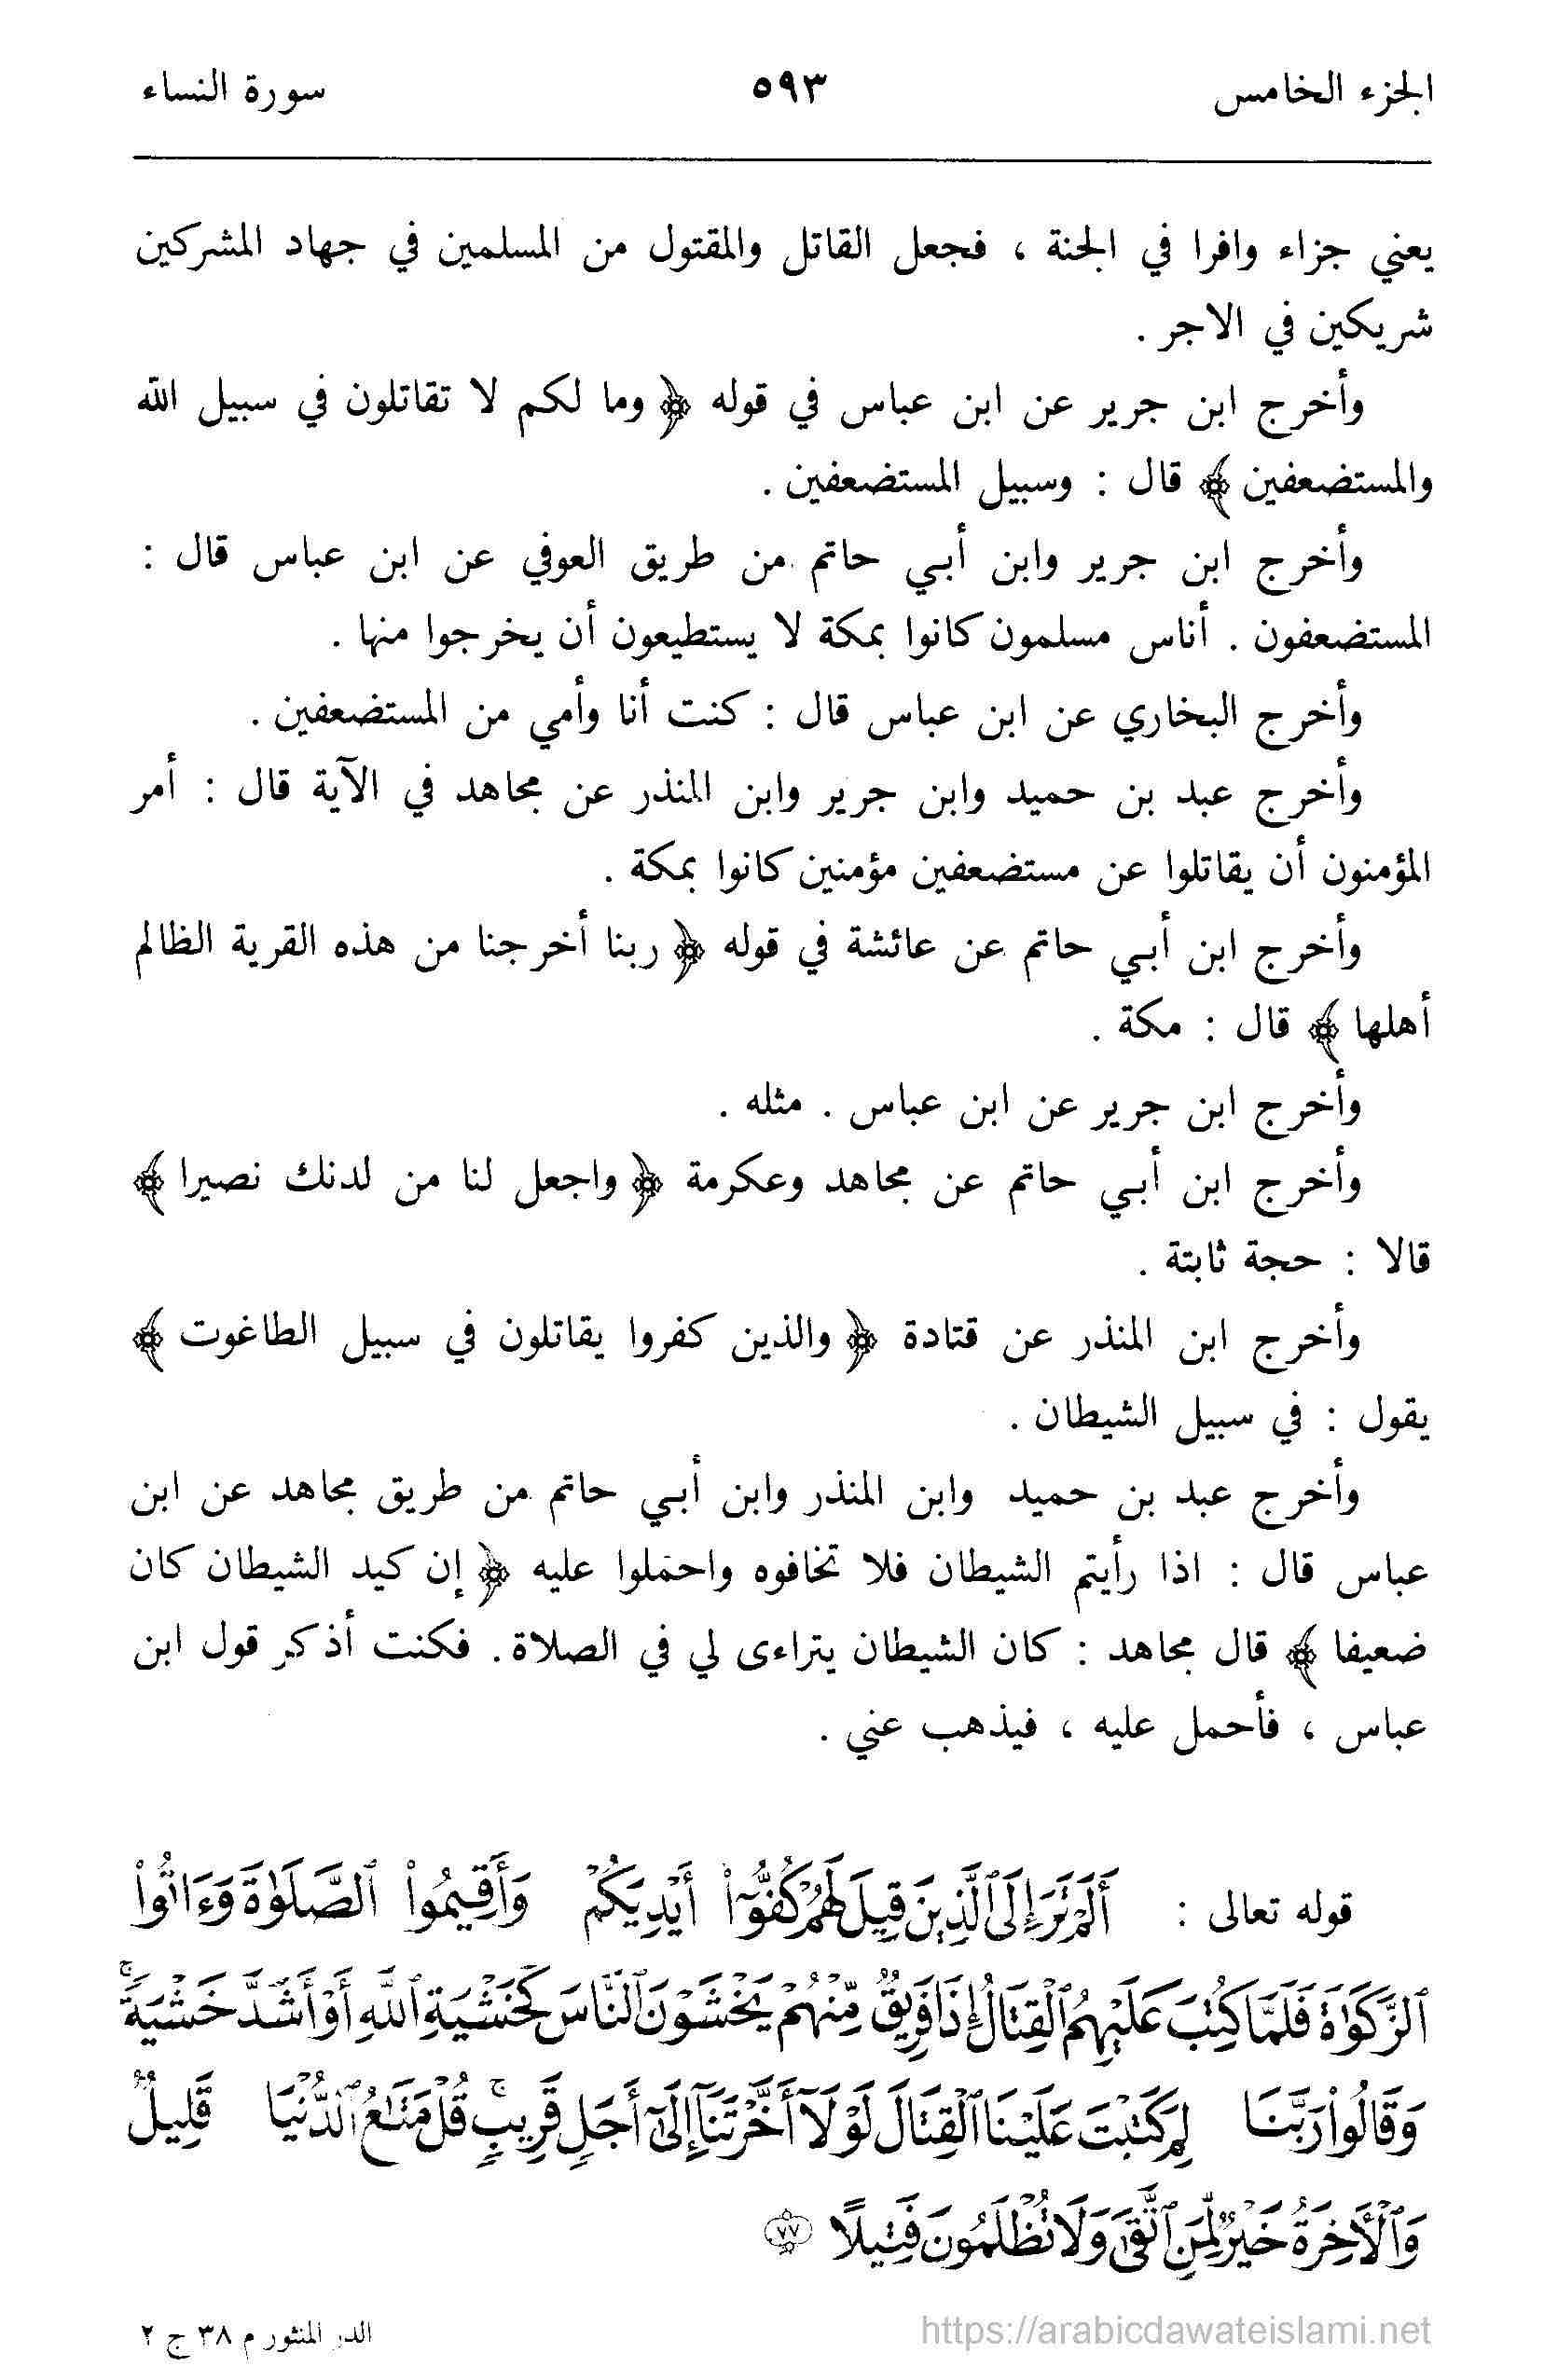 الجزء الخامس ٥٩٣ سورة النساء
يعني جزاء وافرا في الجنة ، فجعل القاتل والمقتول من المسلمين في جهاد المشركين
شريكين في الاجر .
وأخرج ابن جرير عن ابن عباس في قوله ﴿ وما لكم لا تقاتلون في سبيل الله
والمستضعفين ﴾ قال : وسبيل المستضعفين .
وأخرج ابن جرير وابن أبي حاتم من طريق العوفي عن ابن عباس قال :
المستضعفون . أناس مسلمون كانوا بمكة لا يستطيعون أن يخرجوا منها .
وأخرج البخاري عن ابن عباس قال : كنت أنا وأمي من المستضعفين .
وأخرج عبد بن حميد وابن جرير وابن المنذر عن مجاهد في الآية قال : أمر
المؤمنون أن يقاتلوا عن مستضعفين مؤمنين كانوا بمكة .
وأخرج ابن أبي حاتم عن عائشة في قوله ﴿ ربنا أخرجنا من هذه القرية الظالم
أهلها ﴾ قال : مكة .
وأخرج ابن جرير عن ابن عباس . مثله .
وأخرج ابن أبي حاتم عن مجاهد وعكرمة ﴿ واجعل لنا من لدنك نصيرا ﴾
قالا : حجة ثابتة .
وأخرج ابن المنذر عن قتادة ﴿ والذين كفروا يقاتلون في سبيل الطاغوت ﴾
يقول : في سبيل الشيطان .
وأخرج عبد بن حميد وابن المنذر وابن أبي حاتم من طريق مجاهد عن ابن
عباس قال : اذا رأيتم الشيطان فلا تخافوه واحملوا عليه ﴿ إن كيد الشيطان كان
ضعيفا ﴾ قال مجاهد : كان الشيطان يتراءى لي في الصلاة . فكنت أذكر قول ابن
عباس ، فأحمل عليه ، فيذهب عني .
قوله تعالى : أَلَمْ تَرَ إِلَى ٱلَّذِينَ قِيلَ لَهُمْ كُفُّوٓا۟ أَيْدِيَكُمْ وَأَقِيمُوا۟ ٱلصَّلَوٰةَ وَءَاتُوا۟
ٱلزَّكَوٰةَ فَلَمَّا كُتِبَ عَلَيْهِمُ ٱلْقِتَالُ إِذَا فَرِيقٌ مِّنْهُمْ يَخْشَوْنَ ٱلنَّاسَ كَخَشْيَةِ ٱللَّهِ أَوْ أَشَدَّ خَشْيَةً ۚ
وَقَالُوا۟ رَبَّنَا لِمَ كَتَبْتَ عَلَيْنَا ٱلْقِتَالَ لَوْلَآ أَخَّرْتَنَآ إِلَىٰٓ أَجَلٍ قَرِيبٍ ۗ قُلْ مَتَـٰعُ ٱلدُّنْيَا قَلِيلٌ
وَٱلْـَٔاخِرَةُ خَيْرٌ لِّمَنِ ٱتَّقَىٰ وَلَا تُظْلَمُونَ فَتِيلًا ٧٧
الدر المنثور م ٣٨ ج ٢
https://arabicdawateislami.net